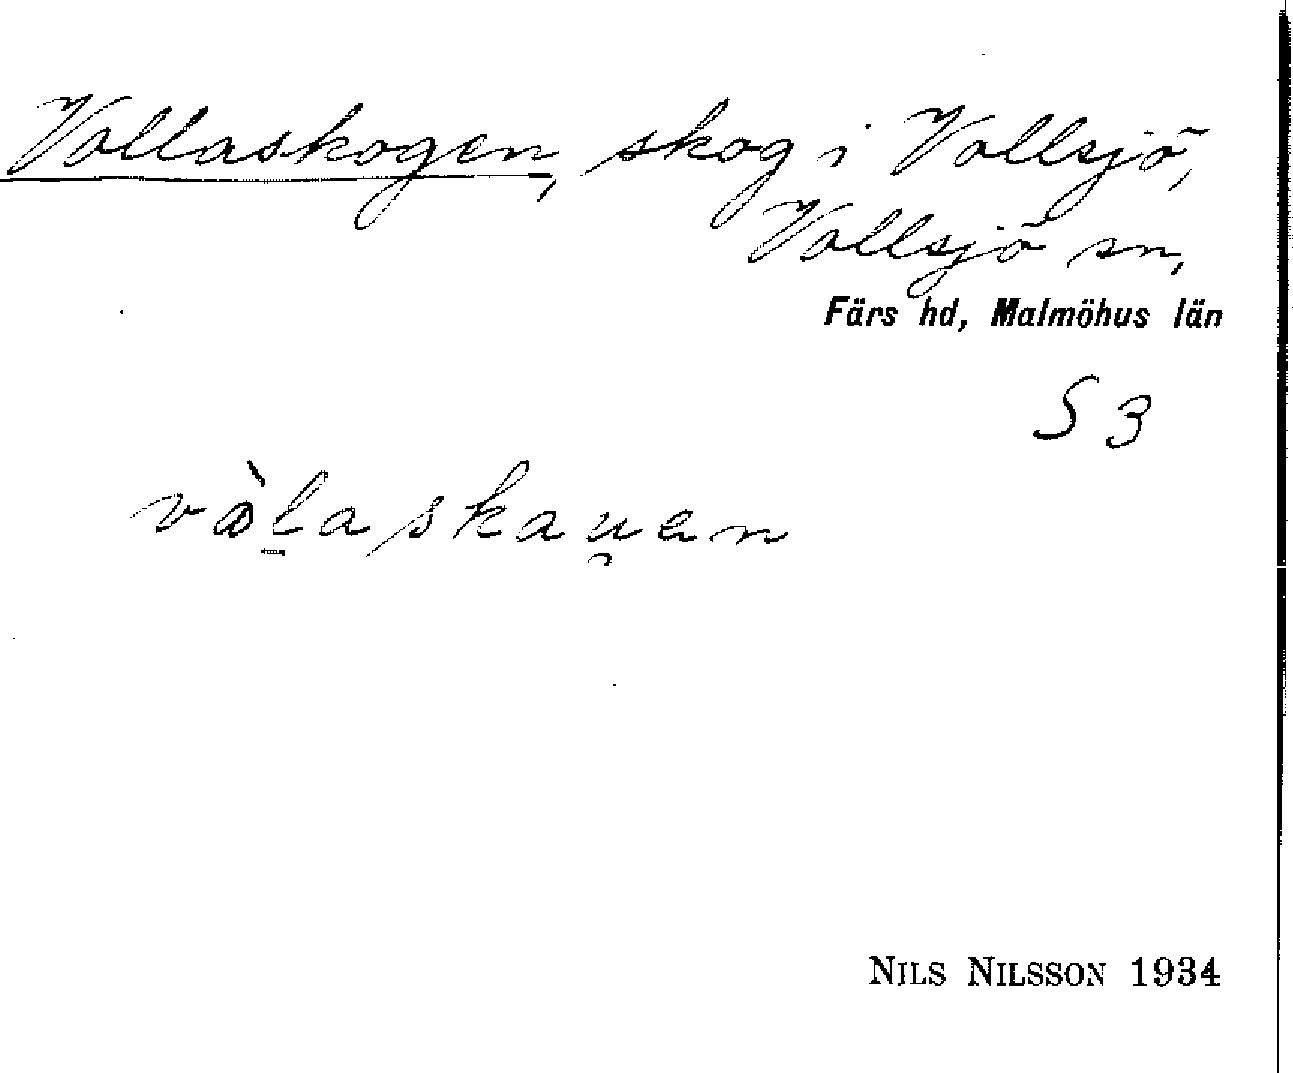 Vollaskogen, skog i Vollsjö,
Vollsjö sn,
Färs hd, Malmöhus län
S 3
vàl̠askau̯en
NILS NILSSON 1934